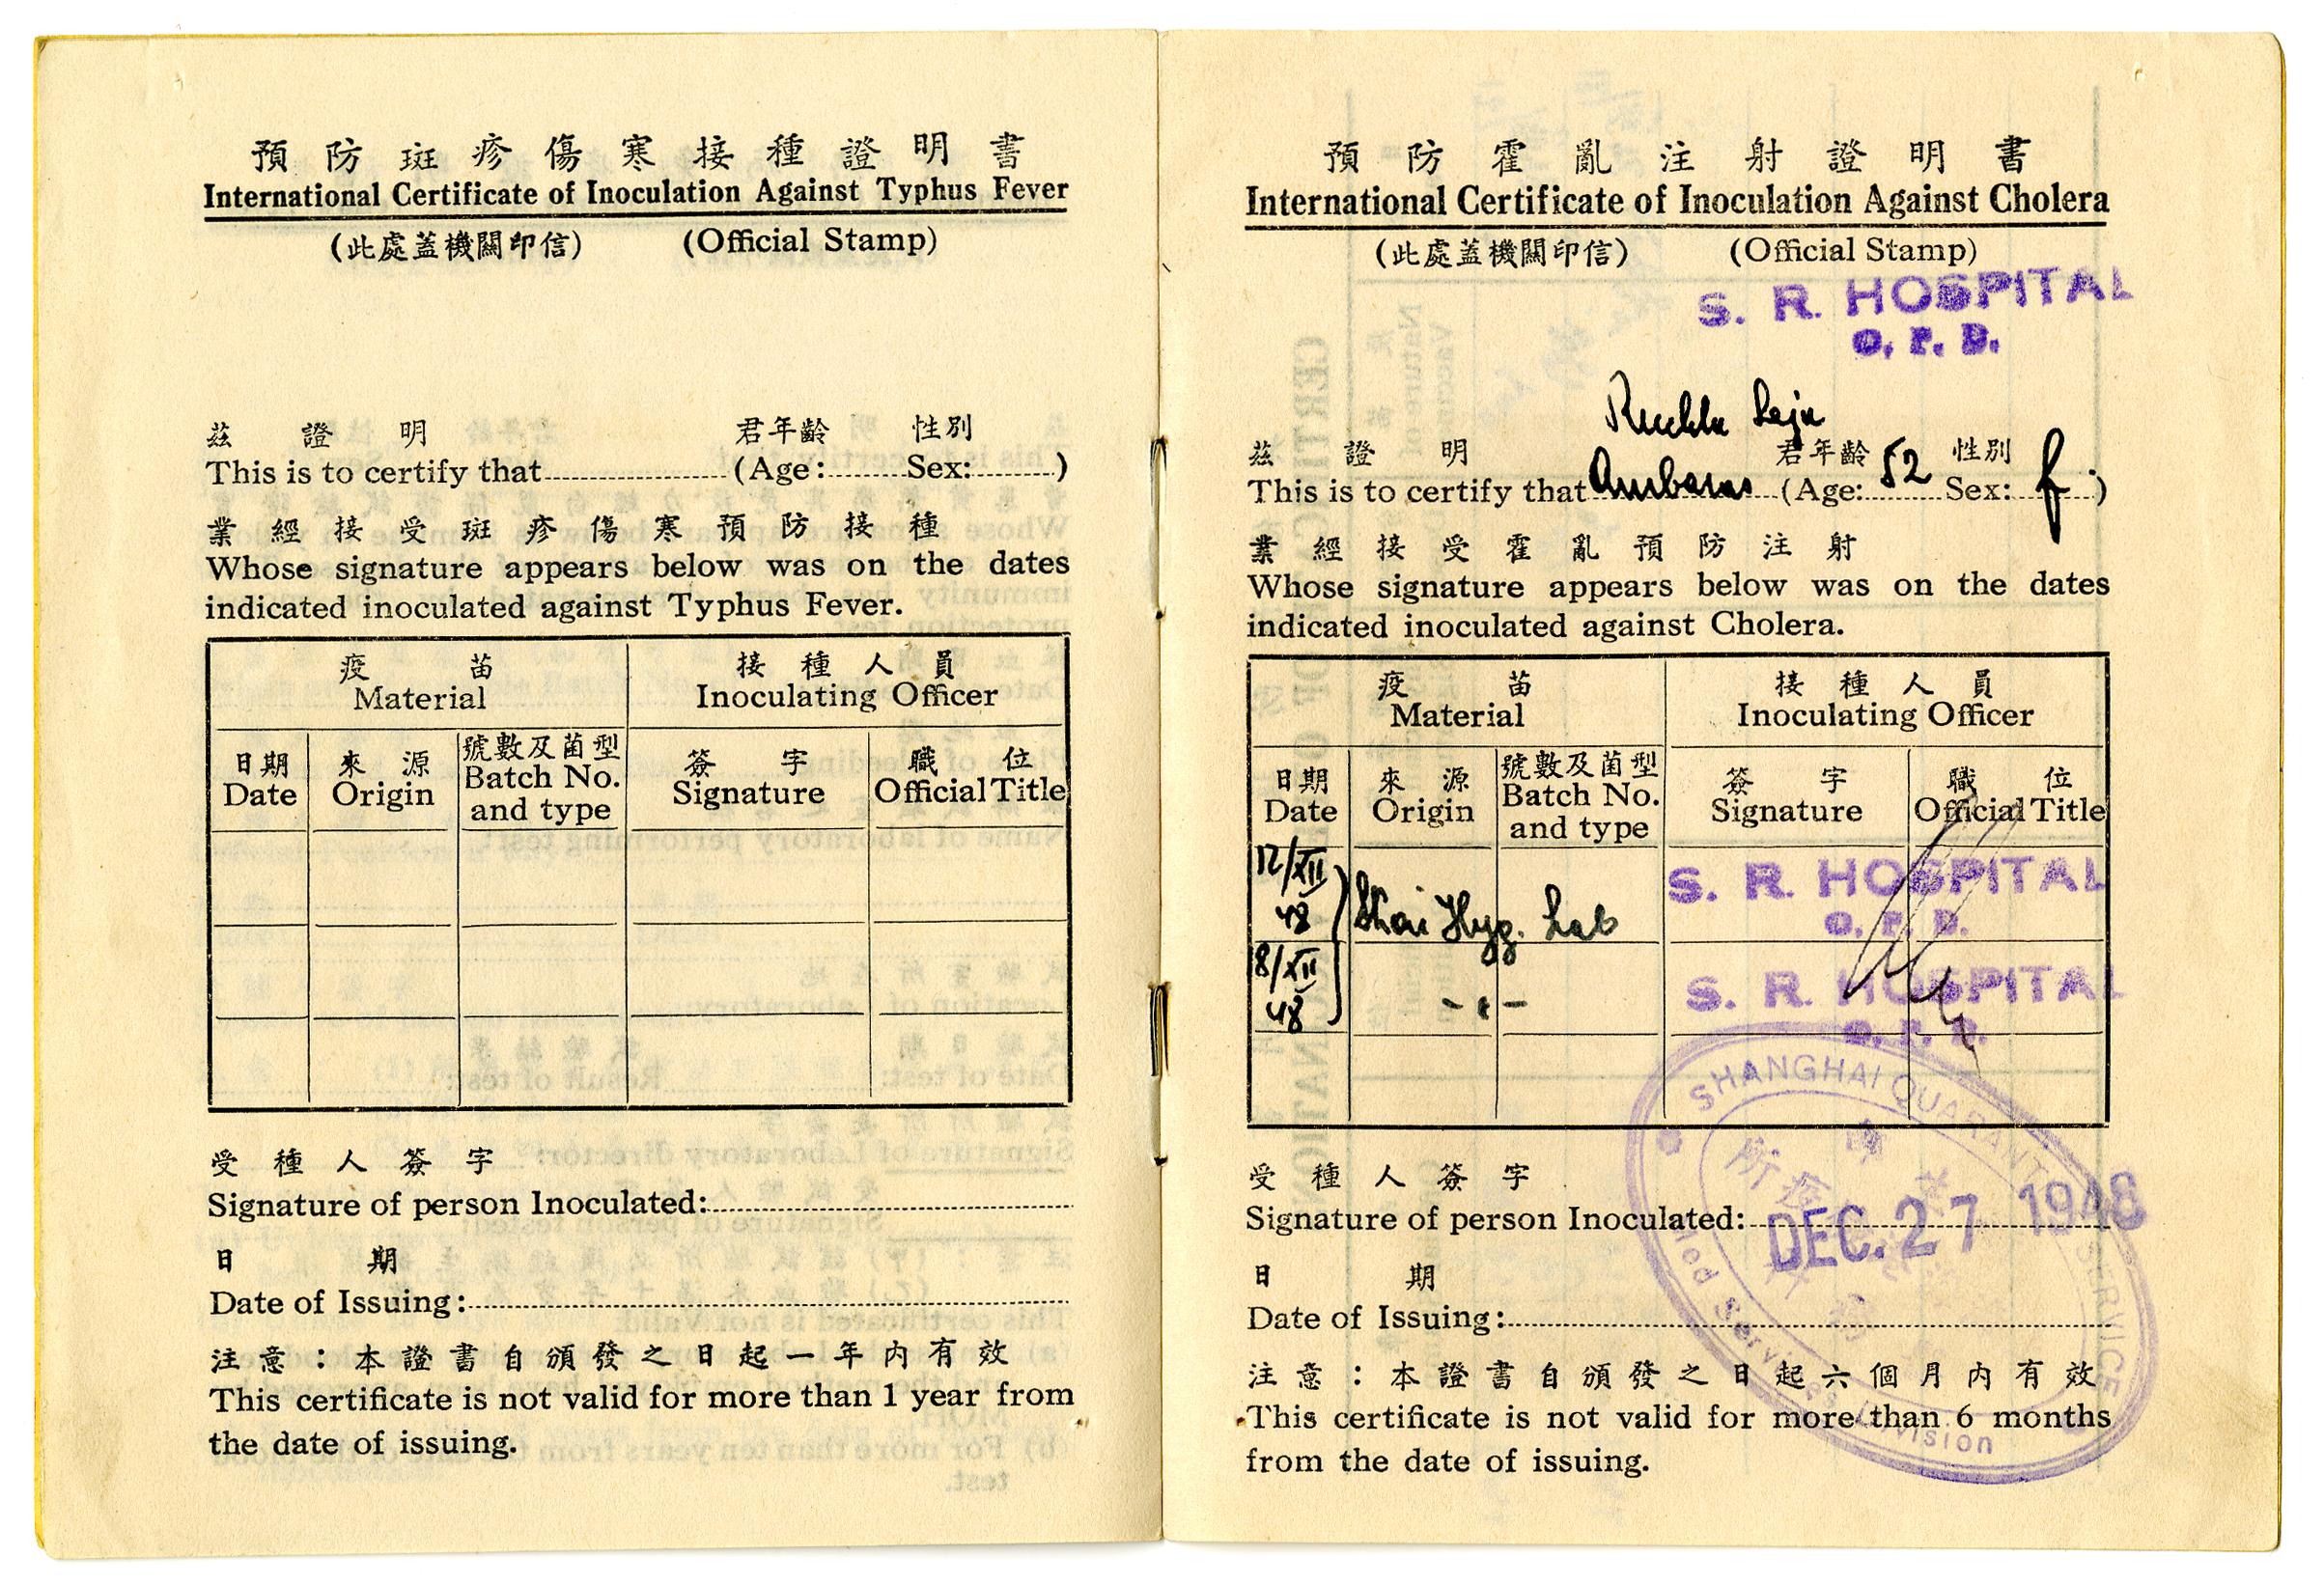 預防斑疹傷寒接種證明書
International Certificate of Inoculation Against Typhus Fever
(此處蓋機關印信) (Official Stamp)
茲證明 君年齡 性別
This is to certify that (Age: Sex: )
業經接受斑疹傷寒預防接種
Whose signature appears below was on the dates
indicated inoculated against Typhus Fever.
疫苗 接種人員
Material Inoculating Officer
日期 來源 號數及菌型 簽字 職位
Date Origin Batch No. and type Signature Official Title
受種人簽字
Signature of person Inoculated:
日期
Date of Issuing:
注意：本證書自頒發之日起一年內有效
This certificate is not valid for more than 1 year from
the date of issuing.
預防霍亂注射證明書
International Certificate of Inoculation Against Cholera
(此處蓋機關印信) (Official Stamp)
S. R. HOSPITAL
O. P. D.
茲證明 君年齡 性別
This is to certify that (Age: 52 Sex: f )
業經接受霍亂預防注射
Whose signature appears below was on the dates
indicated inoculated against Cholera.
疫苗 接種人員
Material Inoculating Officer
日期 來源 號數及菌型 簽字 職位
Date Origin Batch No. and type Signature Official Title
12/XII 48 Shai Hyg. Lab S. R. HOSPITAL
O. P. D.
8/XII 48 -"- S. R. HOSPITAL
O. P. D.
SHANGHAI QUARANTINE SERVICE
受種人簽字
Signature of person Inoculated:
DEC. 27 1948
日期
Date of Issuing:
Med Service Division
注意：本證書自頒發之日起六個月內有效
This certificate is not valid for more than 6 months
from the date of issuing.